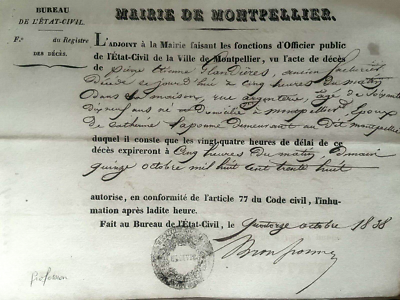 BUREAU
DE L'ÉTAT-CIVIL.
MAIRIE DE MONTPELLIER.
F.º au Registre
DES DÉCÈS.
L'ADJOINT à la Mairie faisant les fonctions d'Officier public
de l'État-Civil de la Ville de Montpellier, vu l'acte de décès
de pierre Etienne ancien
Décédé ce jourd'hui à cinq heures du matin
Dans sa maison, rue argenterie, âgé de soixante
Dix neuf ans né et Domicilié à montpellier, Epoux
de catherine Laponne Demeurant au Dit montpellier
duquel il conste que les vingt-quatre heures de délai de ce
décès expireront à Cinq heures Du matin Demain
quinze octobre mil huit cent trente huit
autorise, en conformité de l'article 77 du Code civil, l'inhu-
mation après ladite heure.
Fait au Bureau de l'État-Civil, le quatorze octobre 1838